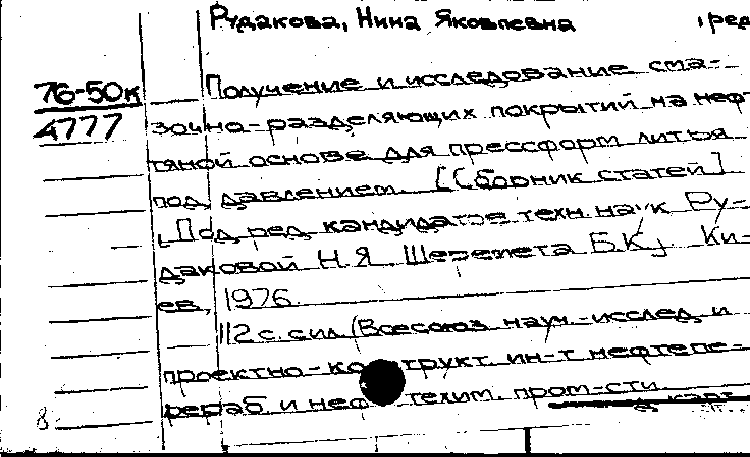 Рудакова, Нина Яковлевна ред
76-50к
4777
Получение и исследование сма-
зочно-разделяющих покрытий на неф-
тяной основе для прессформ литья
под давлением. [Сборник статей]
Под ред. кандидатов техн. наук Ру-
даковой Н.Я Шерепета Б.К, Ки-
ев, 1976.
112 с. с ил (Всесоюз науч.-исслед. и
проектно-ко трукт. ин-т нефтепе-
рераб. и неф техим. пром-сти.
8